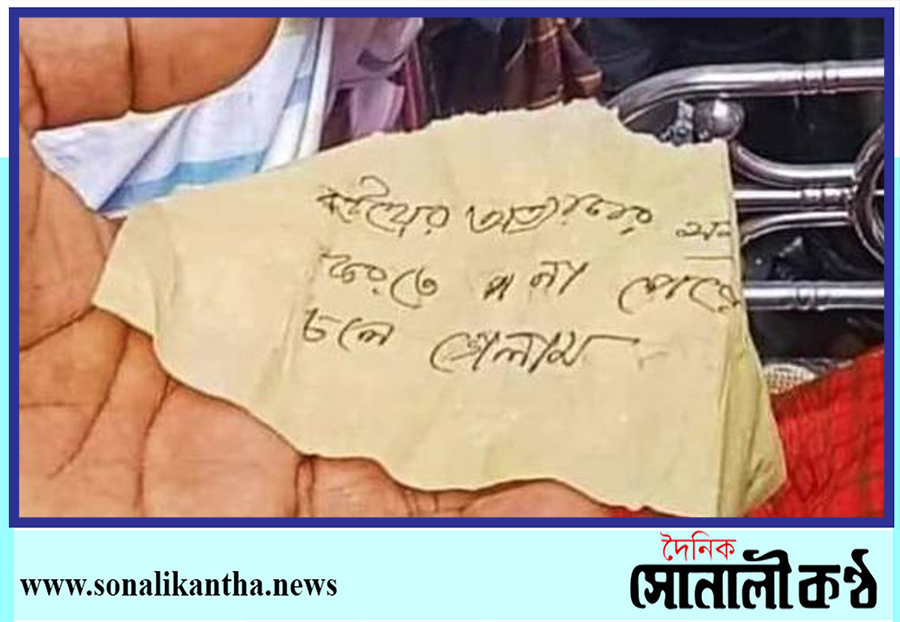 বউয়ের অত্যাচার
করতে না পেরে
চলে গেলাম
www.sonalikantha.news
দৈনিক
সোনালী কণ্ঠ